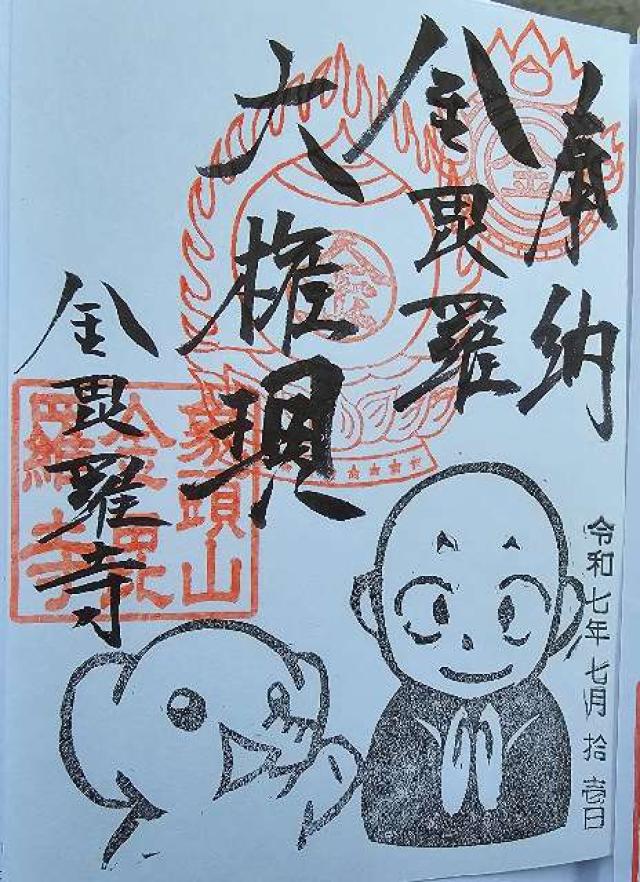 奉納
金毘羅
大権現
金毘羅寺
象頭山
金毘
羅寺
令和七年七月拾壱日